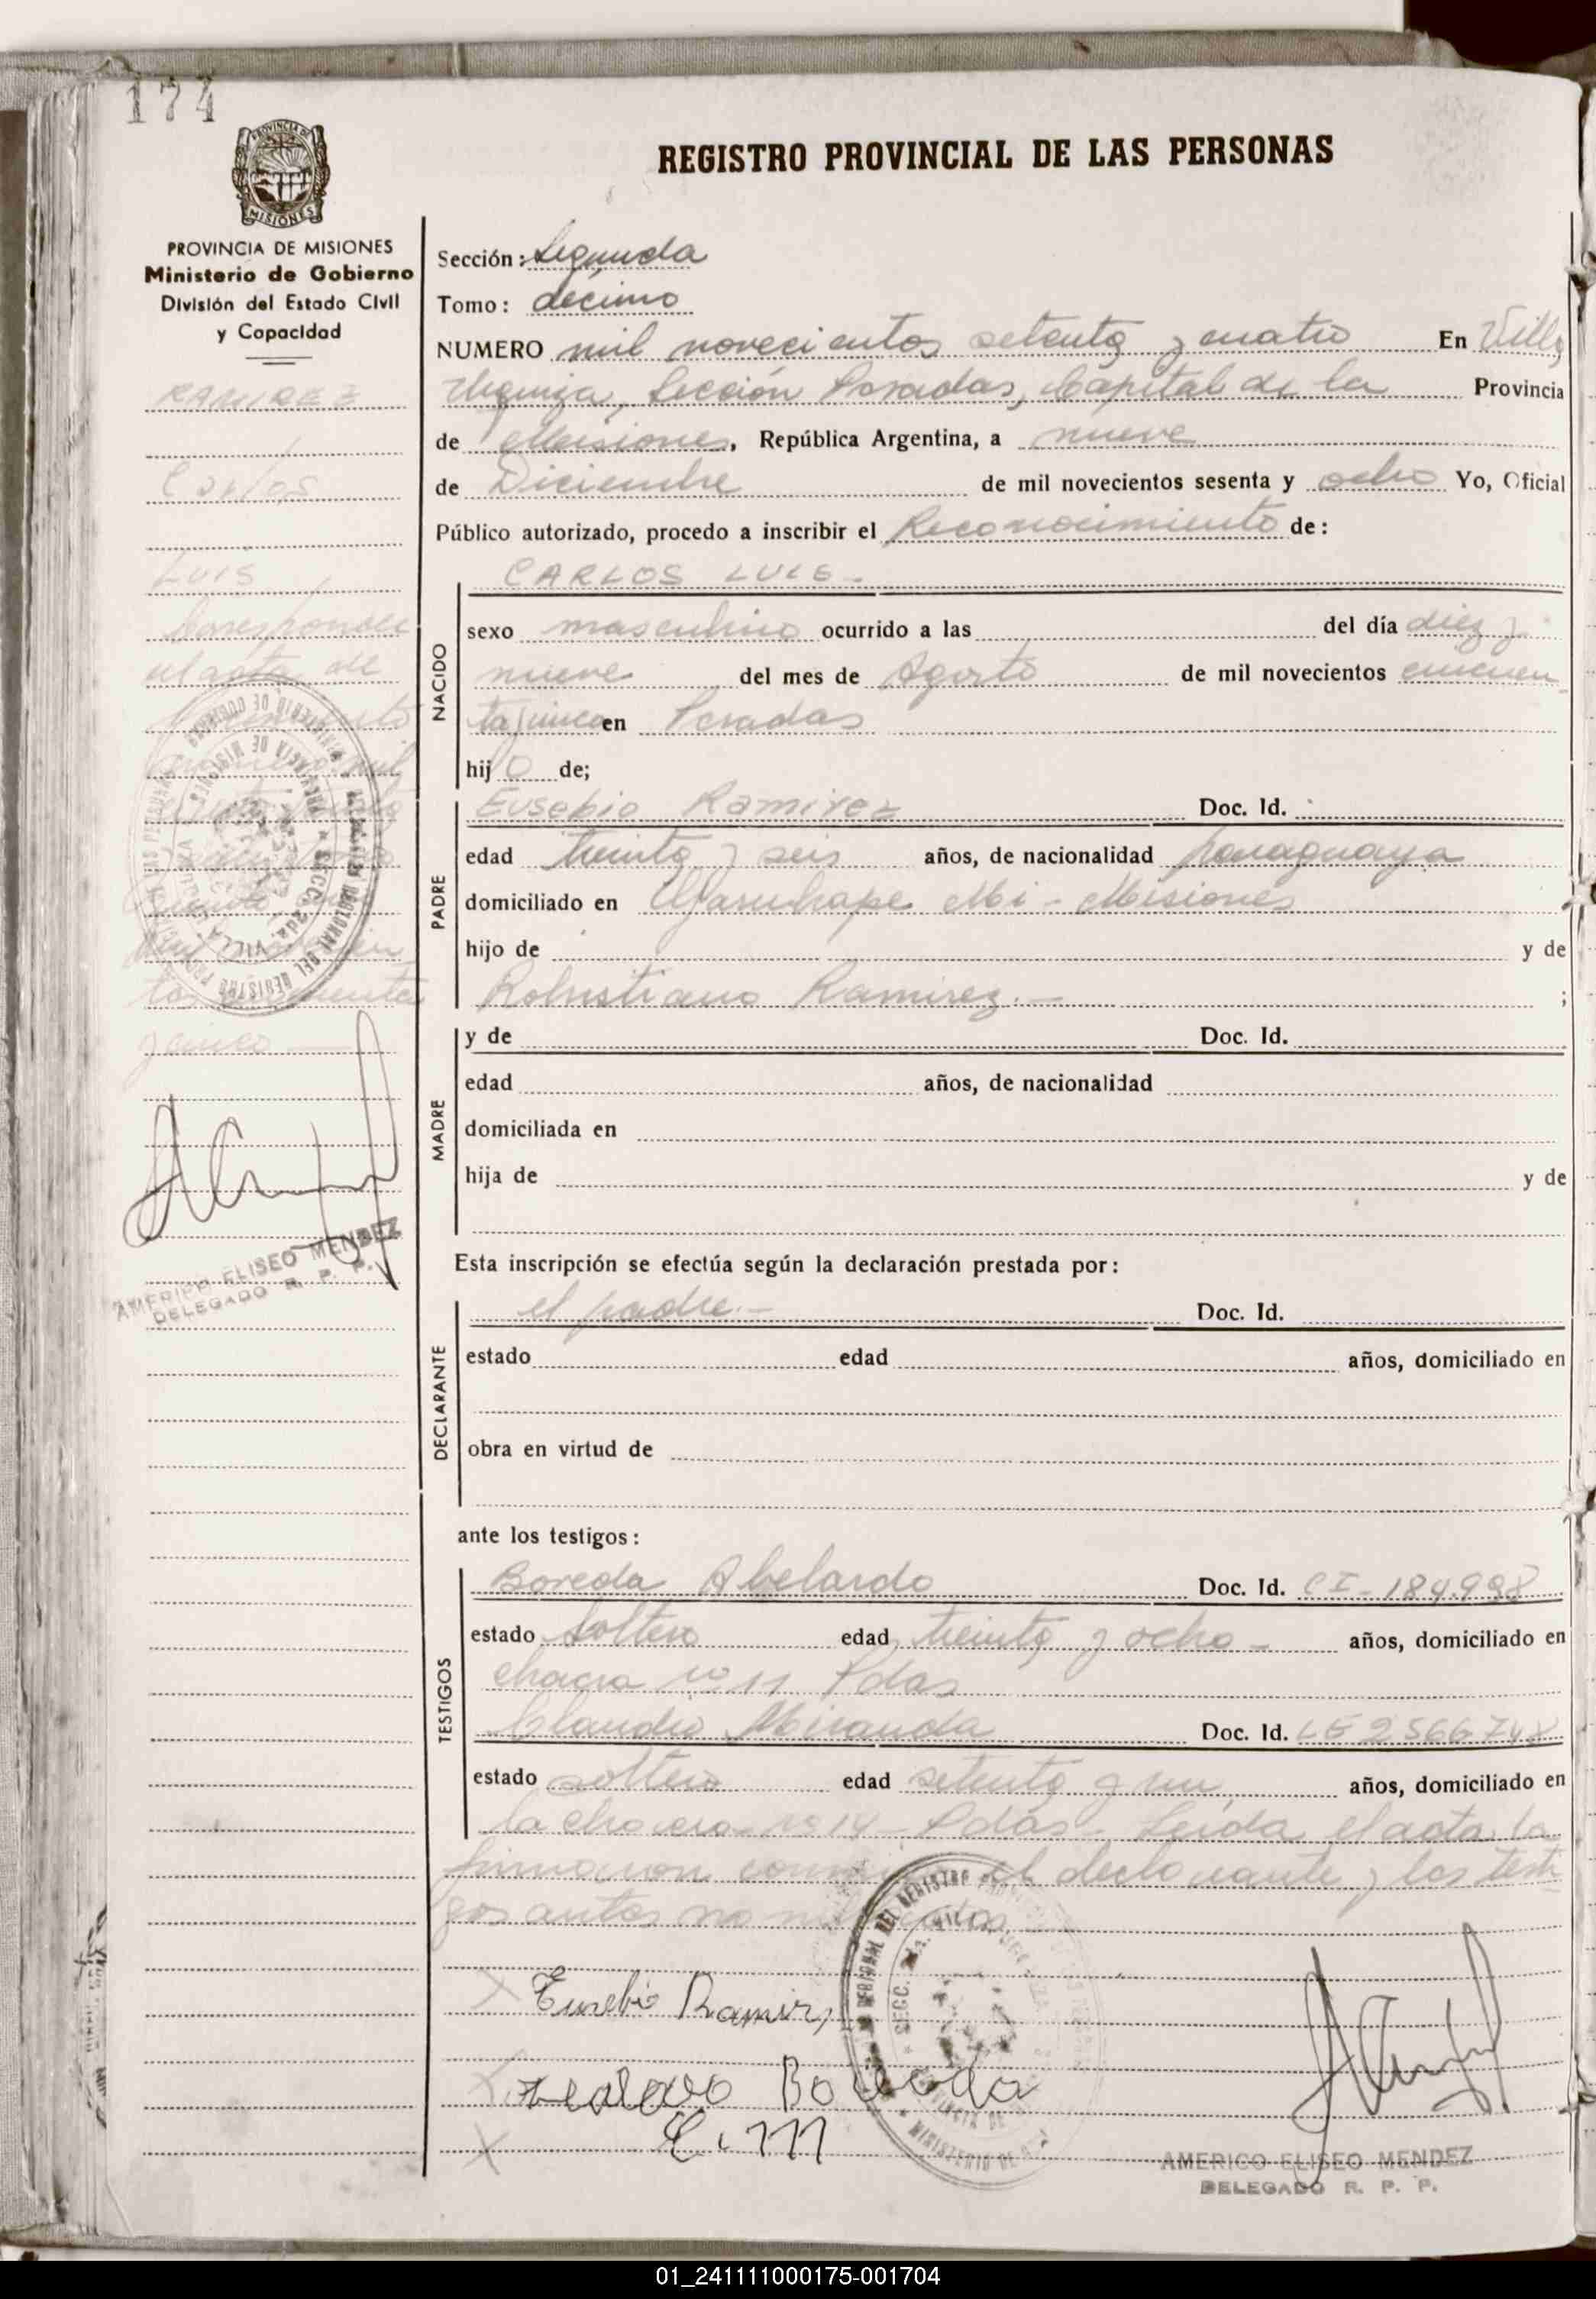 174
PROVINCIA DE MISIONES
REGISTRO PROVINCIAL DE LAS PERSONAS
PROVINCIA DE MISIONES
Ministerio de Gobierno
División del Estado Civil
y Capacidad
RAMIREZ
Carlos
LUIS
Corresponde
el acta de
y cinco
AMERICO ELISEO MENDEZ
DELEGADO R. P. P.
Sección: Segunda
Tomo: décimo
NUMERO mil novecientos setenta y cuatro En Villa
Urquiza, Sección Posadas, Capital de la Provincia
de Misiones, República Argentina, a nueve
de Diciembre de mil novecientos sesenta y ocho Yo, Oficial
Público autorizado, procedo a inscribir el Reconocimiento de:
CARLOS LUIS.-
NACIDO
sexo masculino ocurrido a las del día diez y
nueve del mes de Agosto de mil novecientos cincuen
ta y cinco en Posadas
hijo de;
PADRE
Eusebio Ramirez Doc. Id.
edad treinta y seis años, de nacionalidad paraguaya
domiciliado en Garuhape Mi - Misiones
hijo de y de
Robustiano Ramirez.- ;
MADRE
y de Doc. Id.
edad años, de nacionalidad
domiciliada en
hija de y de
Esta inscripción se efectúa según la declaración prestada por:
DECLARANTE
el padre.- Doc. Id.
estado edad años, domiciliado en
obra en virtud de
ante los testigos:
TESTIGOS
Boreda Abelardo Doc. Id. CI-184.998
estado Soltero edad treinta y ocho - años, domiciliado en
chacra nº 11 Pdas
Claudio Miranda Doc. Id. LE 2566748
estado soltero edad setenta y un años, domiciliado en
la chacra nº 14 - Pdas - Leida el acta la
firmaron conmigo el declarante y los testi
gos antes
Eusebio Ramirez
Boreda
C. M
AMERICO ELISEO MENDEZ
DELEGADO R. P. P.
01_241111000175-001704